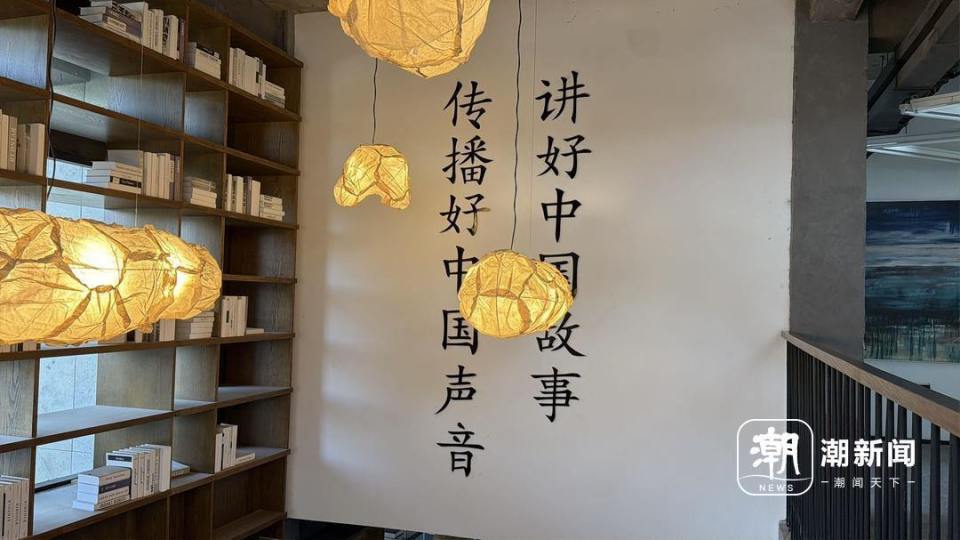 讲好中国故事
传播好中国声音
潮
NEWS
潮新闻
潮闻天下